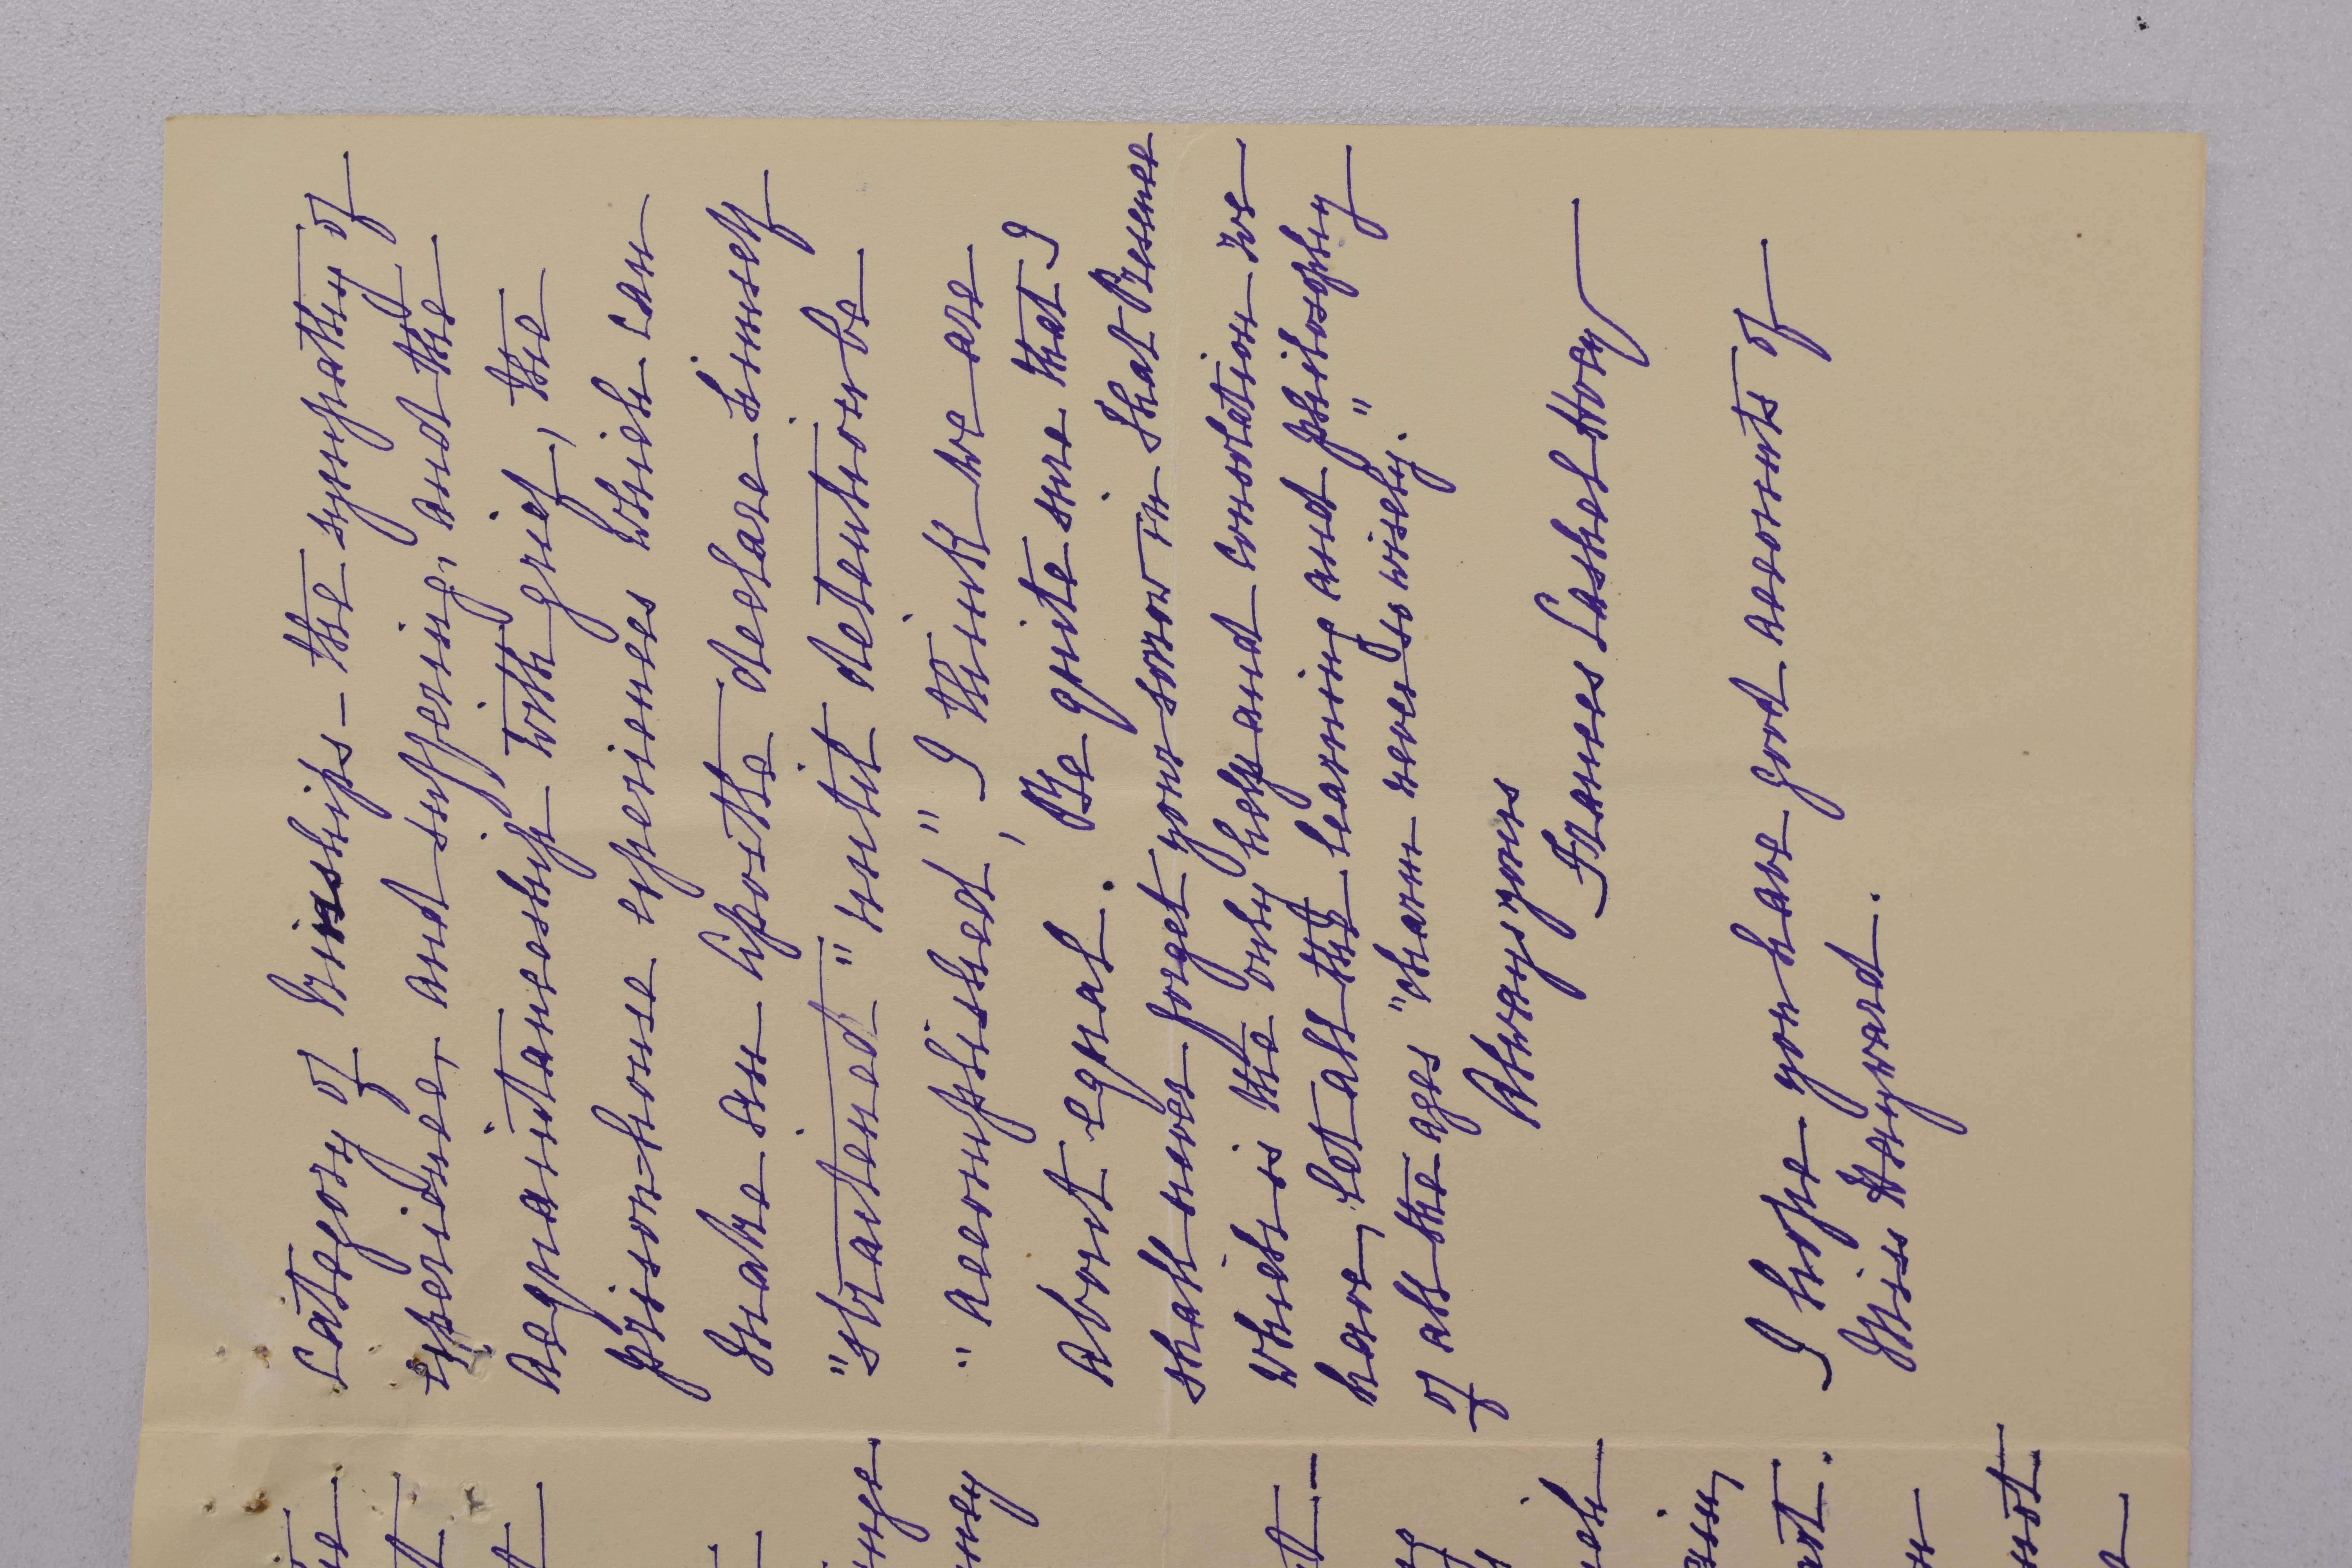 category of kinships – the sympathy of
experience, and suffering, and the
acquaintanceship with grief, the
prison-house experiences which can
make an Apostle declare himself
"straitened" "until detention be
"accomplished" " I think we are
about equal. Be quite sure that I
shall never forget your sorrow in that Presence
which is the only help and consolation we
have, let all the learning and philosophy
of all the ages "charm never so wisely."
Always yours
Frances Cashel Hoey
I hope you have good accounts of
Miss Hayward.